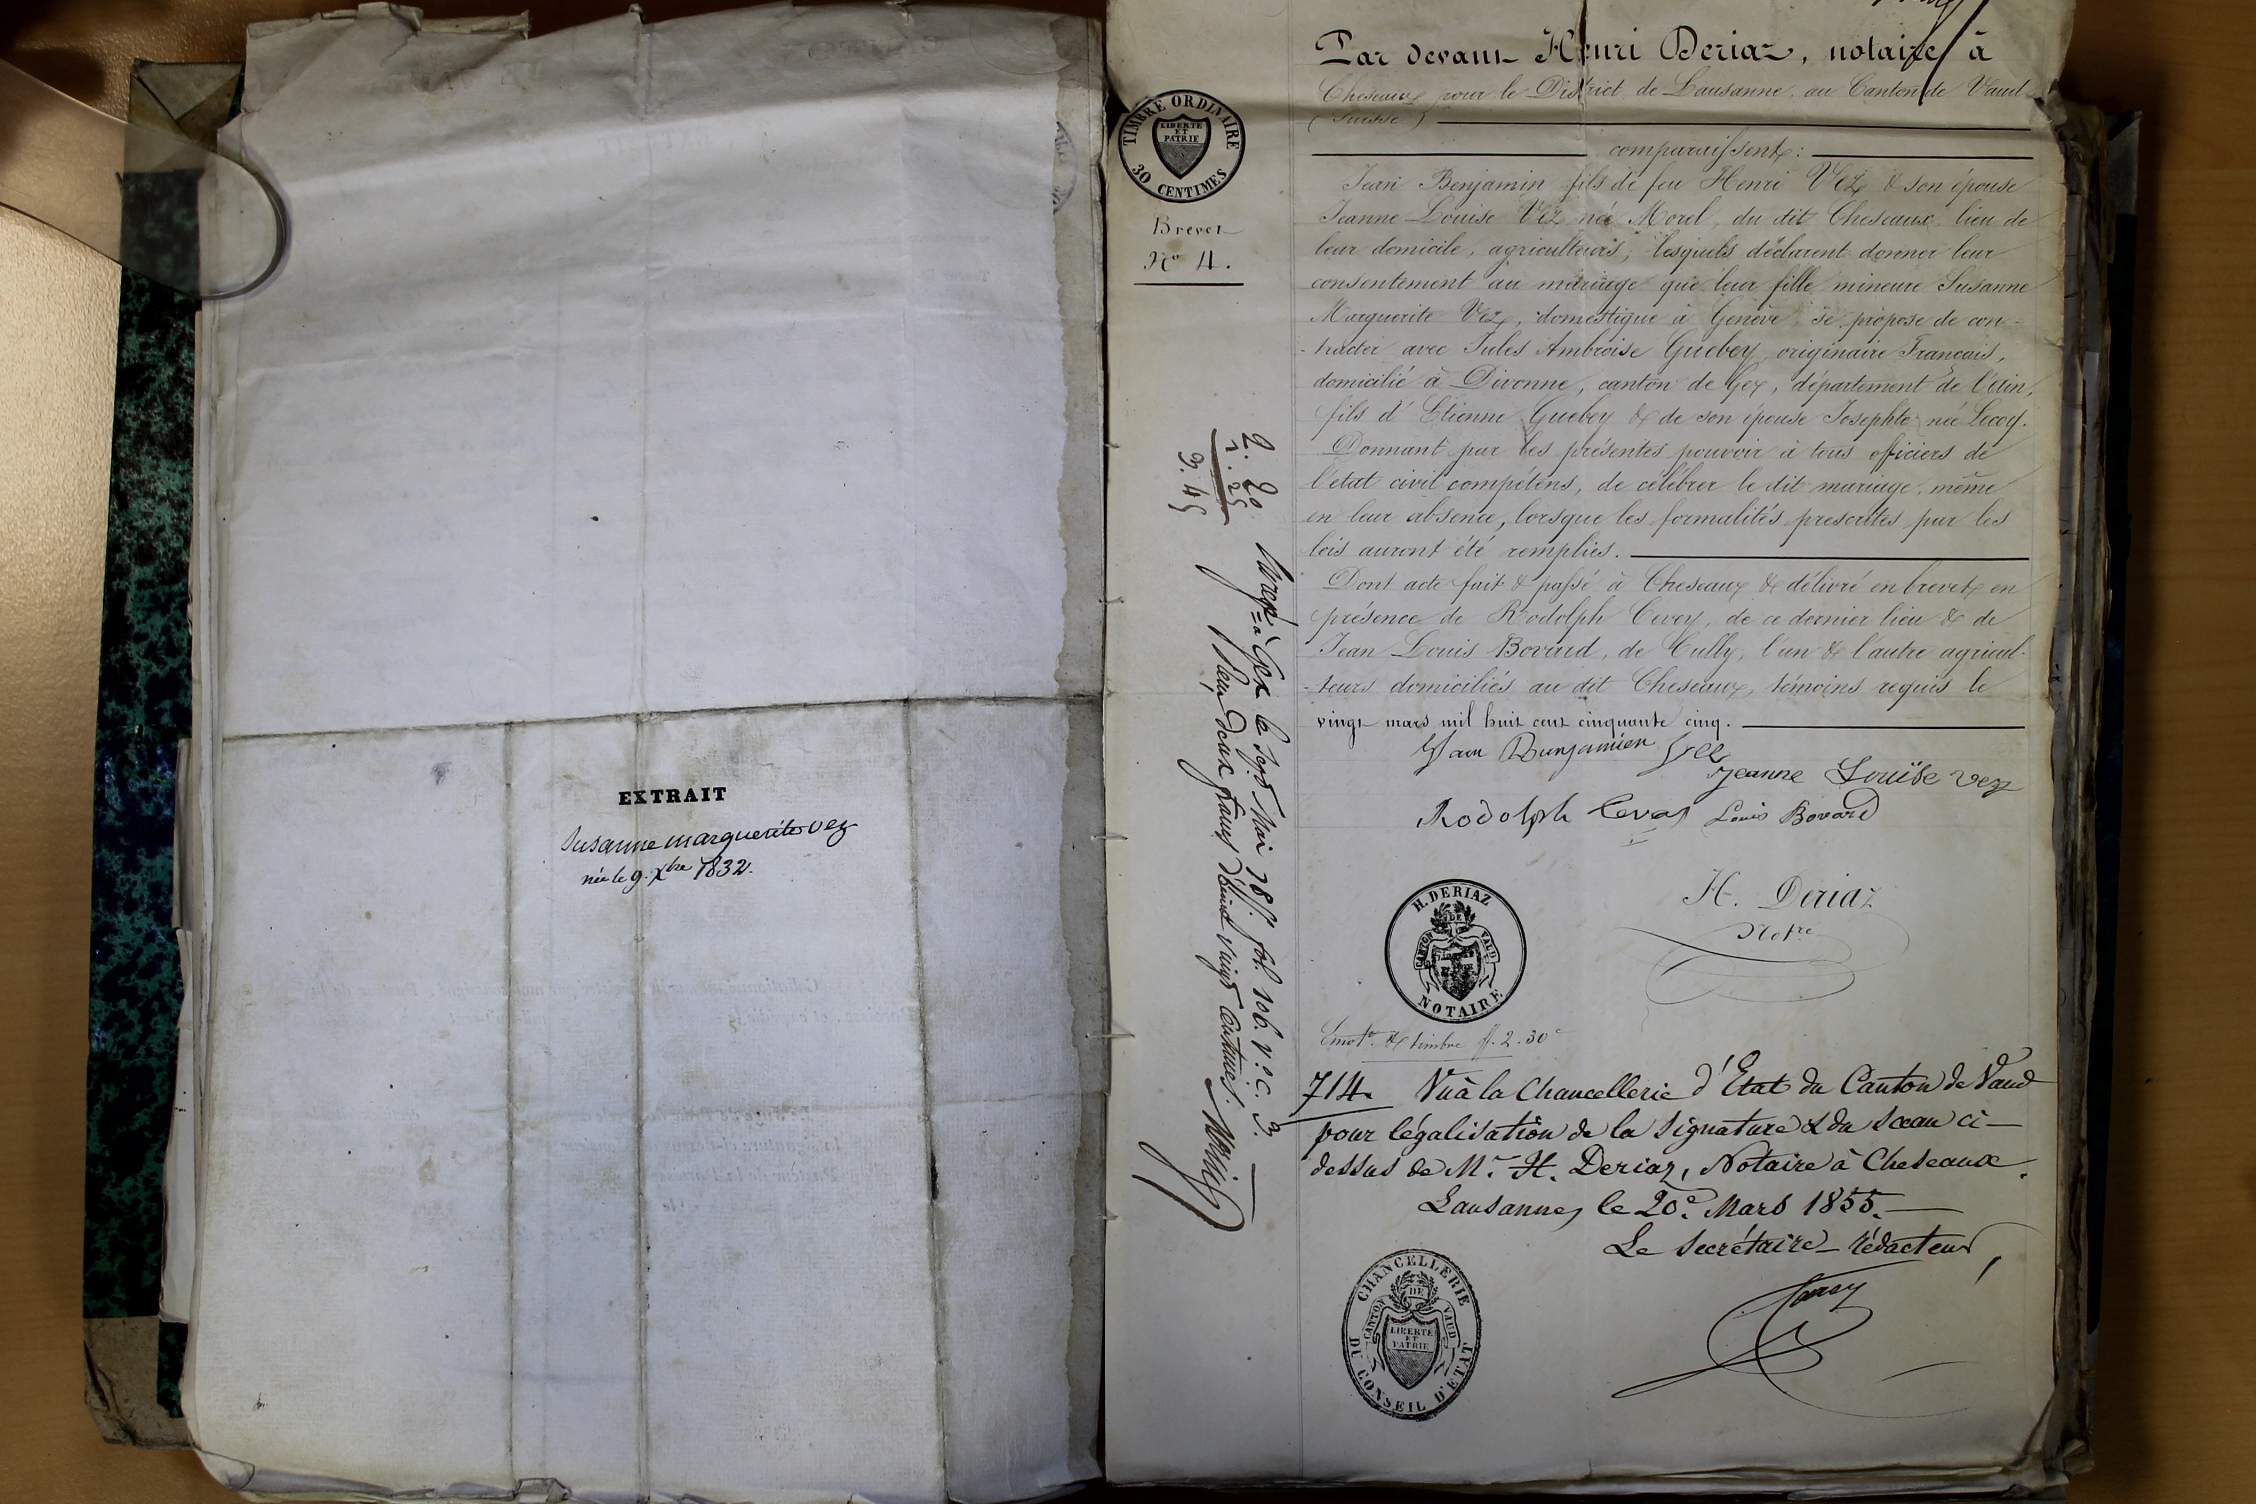 EXTRAIT
Susanne marguerite Vez
née le 9. Xbre 1832.
TIMBRE ORDINAIRE
LIBERTE
ET
PATRIE
30 CENTIMES
Brevet
No 4.
Par devant Henri Deriaz, notaire à
Cheseaux pour le District de Lausanne, au Canton de Vaud
(Suisse)
comparaissent:
Jean Benjamin fils de feu Henri Vez & son épouse
Jeanne Louise Vez née Morel, du dit Cheseaux lieu de
leur domicile, agriculteurs; lesquels déclarent donner leur
consentement au mariage que leur fille mineure Susanne
Marguerite Vez, domestique à Genève, se propose de con-
-tracter avec Jules Ambroise Guebey, originaire Francais,
domicilié à Divonne, canton de Gex, département de l'Ain,
fils d'Etienne Guebey & de son épouse Josephte née Lecoy.
Donnant par les présentes pouvoir à tous officiers de
l'état civil compétens, de célébrer le dit mariage, même
en leur absence, lorsque les formalités prescrites par les
lois auront été remplies.
Dont acte fait & passé à Cheseaux & délivré en brevet en
présence de Rodolph Cevey, de ce dernier lieu & de
Jean Louis Bovard, de Cully, l'un & l'autre agricul-
-teurs domiciliés au dit Cheseaux, témoins requis le
vingt mars mil huit cent cinquante cinq.
Jean Bunjamien Vez
Jeanne Louise Vez
Rodolph Cevey Louis Bovard
H. Deriaz
Notre
H. DERIAZ
CANTON DE VAUD
NOTAIRE
Emolt. & timbre ff. 2.30c
2. 20
1. 25
3. 45
à Gex le Sept Mai 1855. fol. 106. Vo. C. 3.
deux francs Vingt Centimes.
714. Vu à la Chancellerie d'Etat du Canton de Vaud
pour légalisation de la signature & du sceau ci-
dessus de Mr. H. Deriaz, Notaire à Cheseaux.
Lausanne, le 20e. Mars 1855.
Le secrétaire-rédacteur,
CHANCELLERIE
CANTON DE VAUD
LIBERTE
ET
PATRIE
DU CONSEIL D'ETAT